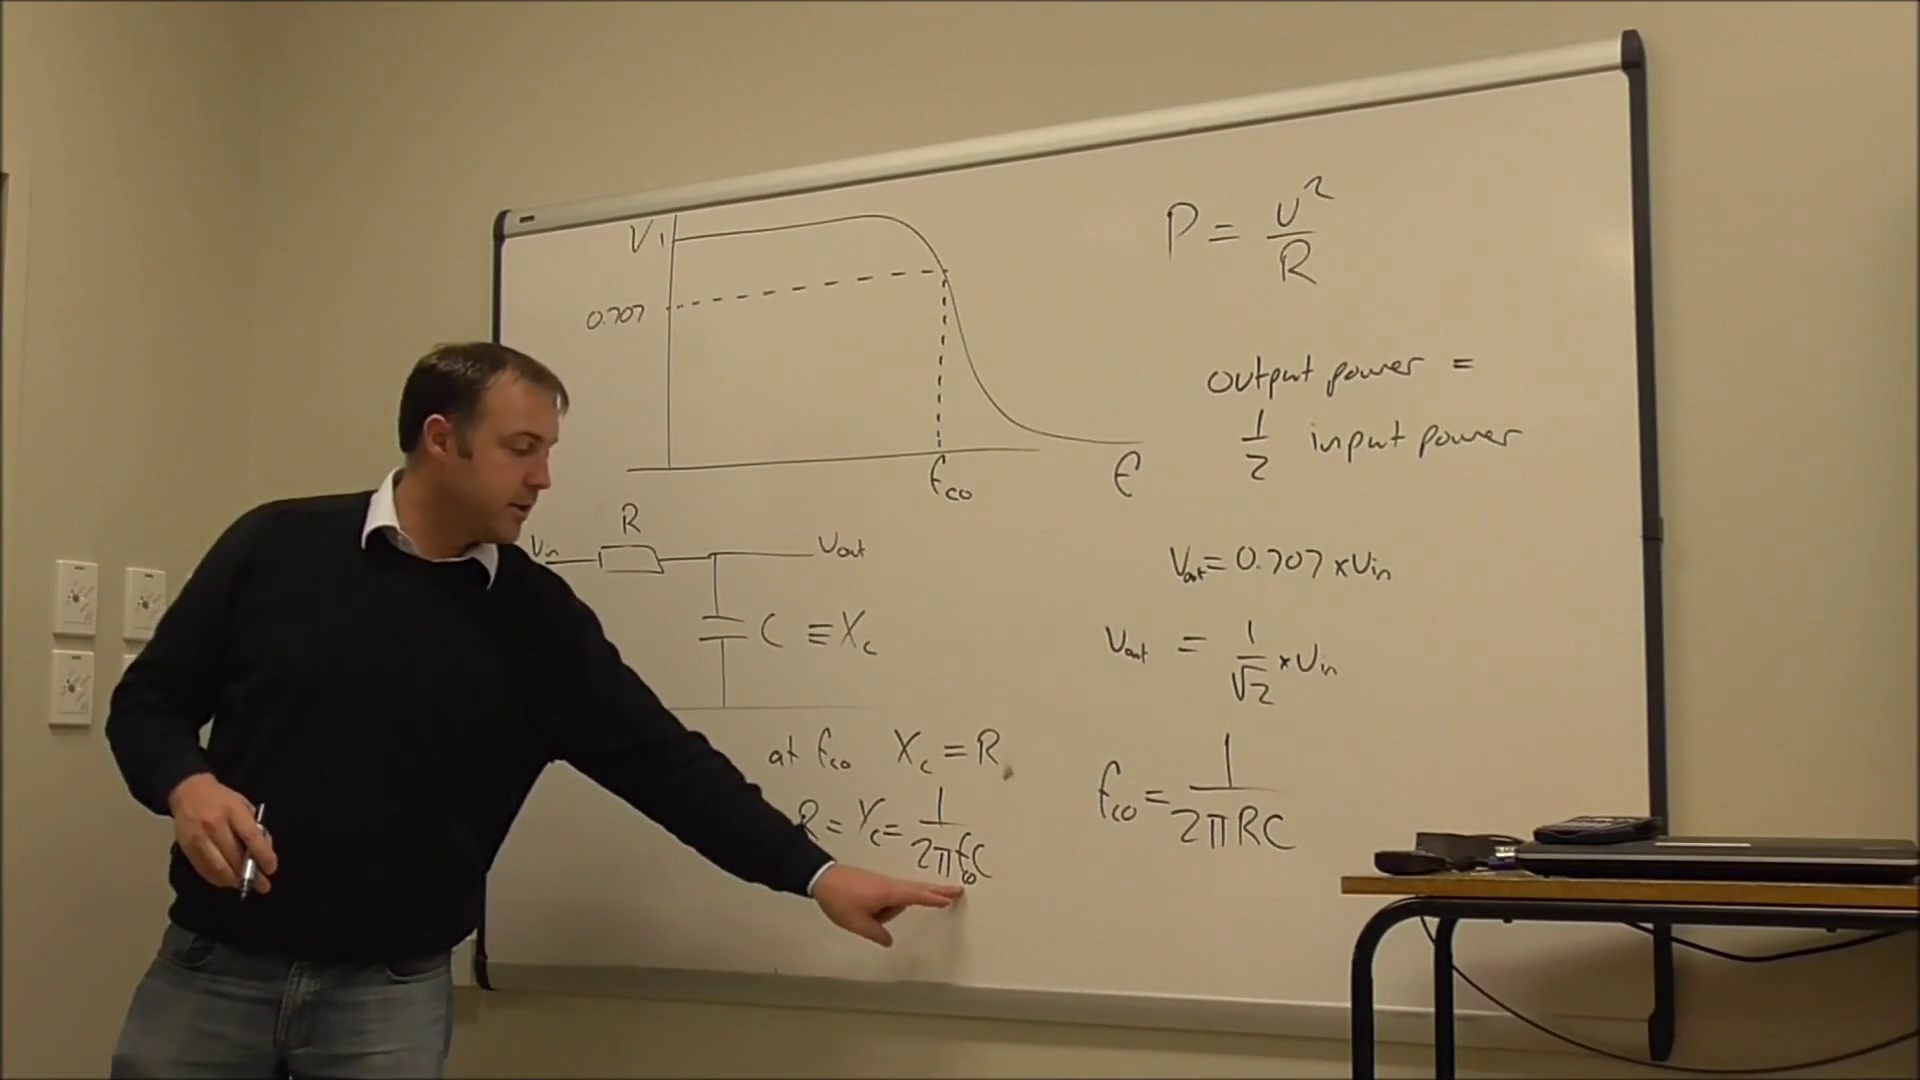 V 1
0.707
fco
f
R
Vin
Vout
C ≡ Xc
at fco Xc = R
R = Xc = 1/2πfcoC
P = V²/R
output power =
1/2 input power
Vout = 0.707 x Vin
Vout = 1/√2 x Vin
fco = 1/2πRC